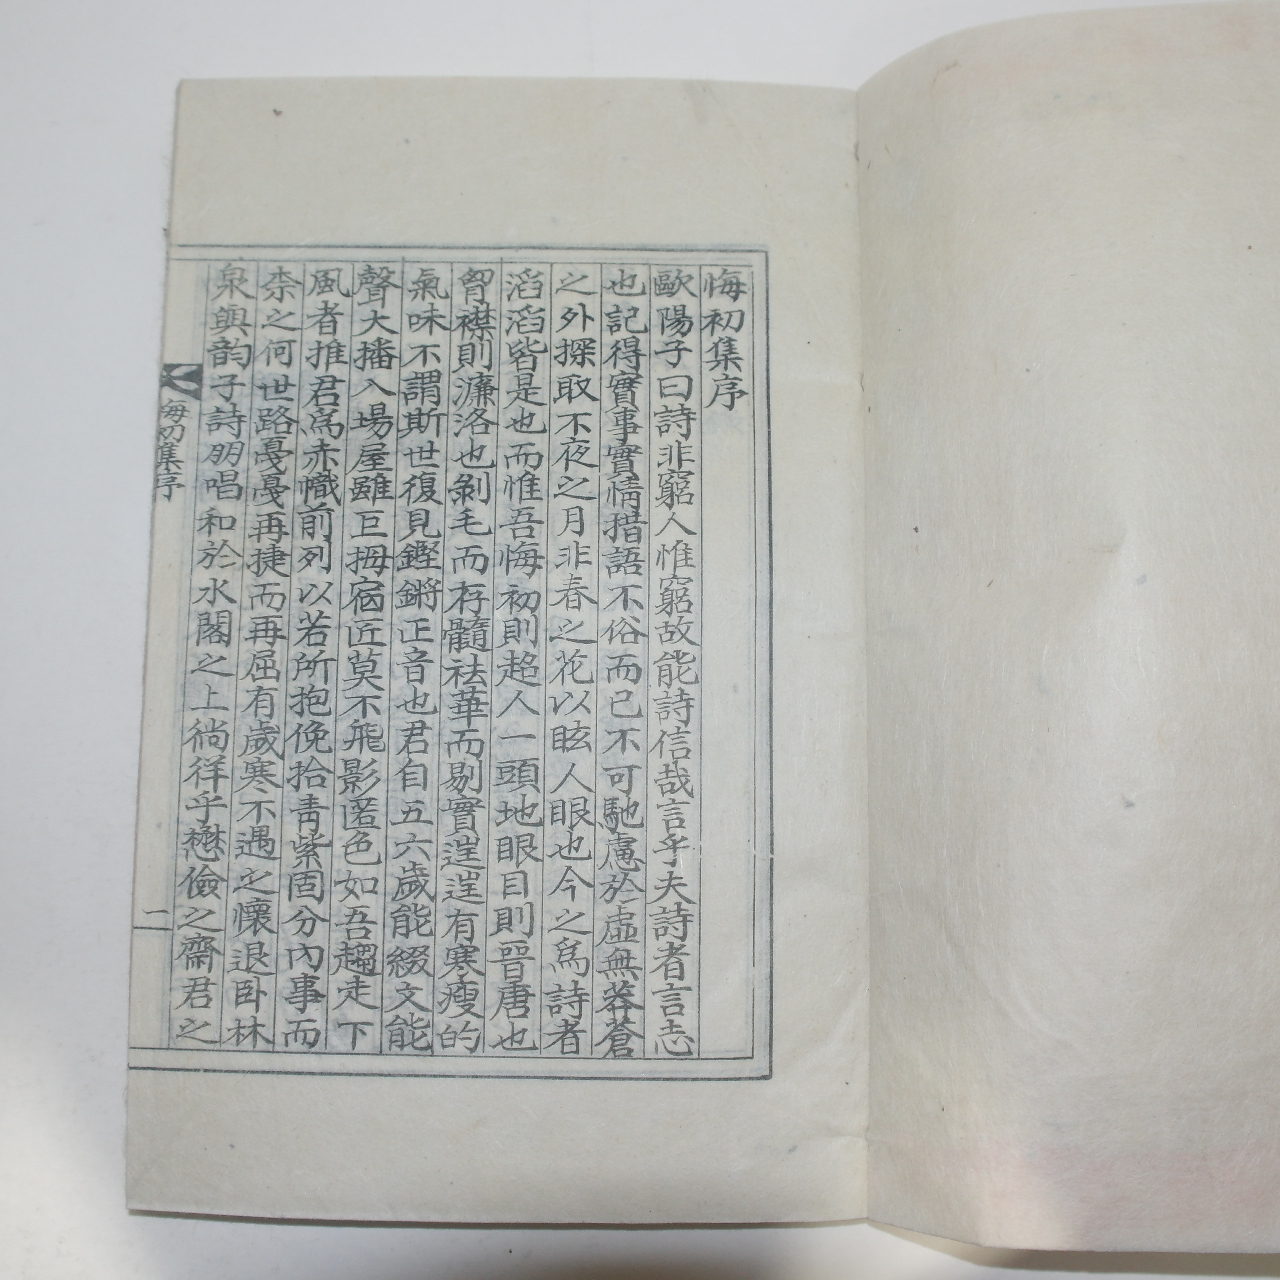 悔初集序
歐陽子曰詩非窮人惟窮故能詩信哉言乎夫詩者言志
也記得實事實情措語不俗而已不可馳慮於虛無莽蒼
之外探取不夜之月非春之花以眩人眼也今之爲詩者
滔滔皆是也而惟吾悔初則超人一頭地眼目則晉唐也
胷襟則濂洛也剝毛而存髓祛華而剔實逞逞有寒瘦的
氣味不謂斯世復見鏗鏘正音也君自五六歲能綴文能
聲大播入場屋雖巨拇宿匠莫不䬠影匿色如吾趨走下
風者推君爲赤幟前列以若所抱俛拾靑紫固分內事而
柰之何世路戞戞再捷而再屈有歲寒不遇之懷退卧林
泉與韵子詩朋唱和於水閣之上徜徉乎懋儉之齋君之
悔初集序
二